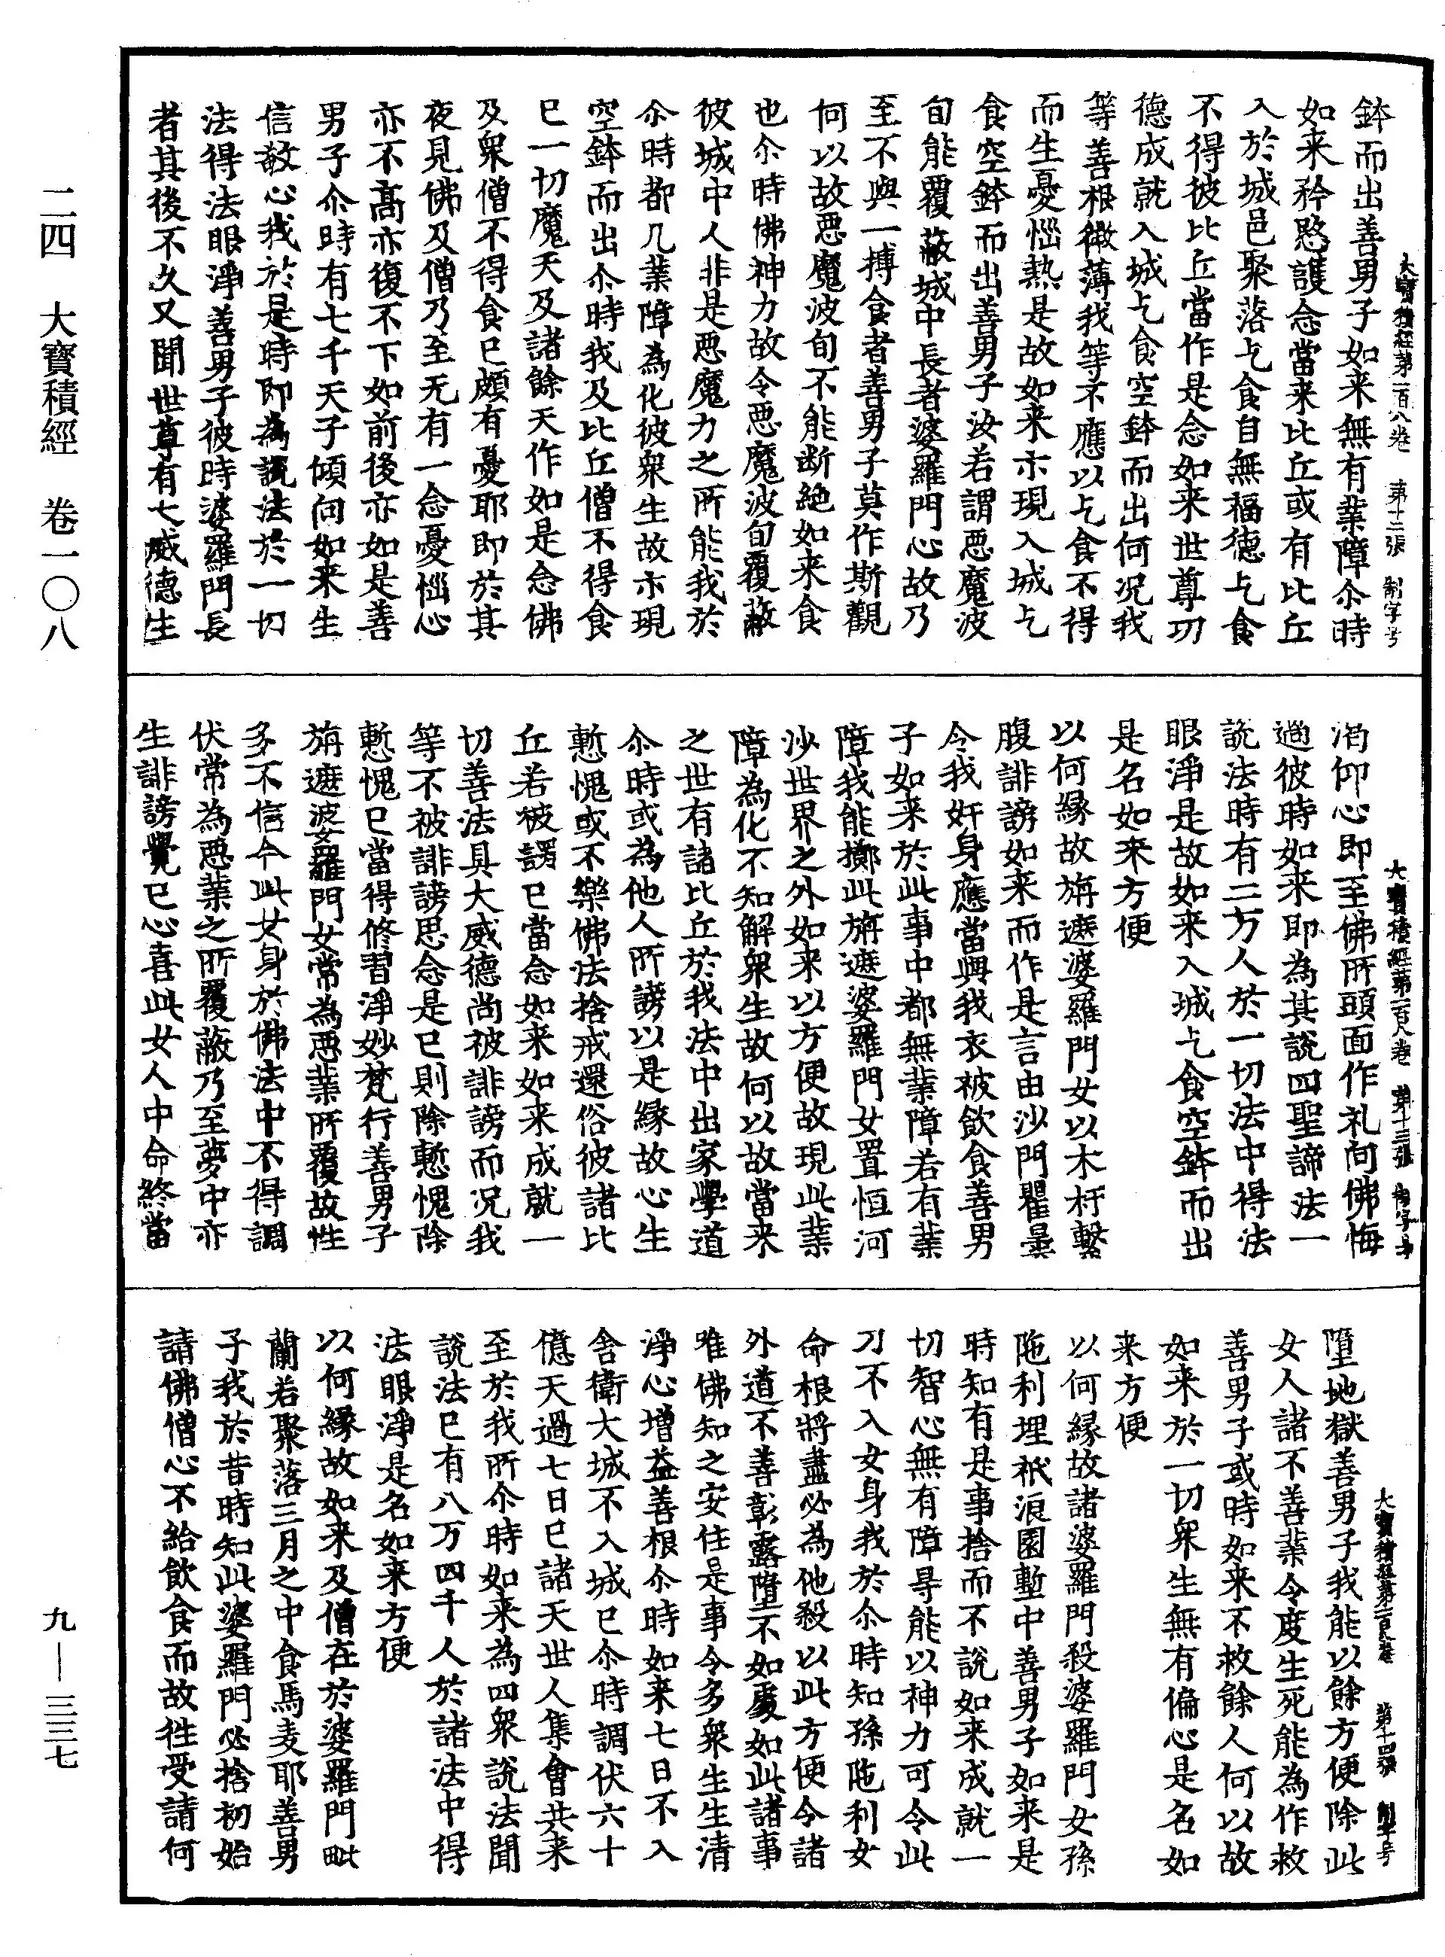 大寶積經第一百八卷 第十二張 制字号
鉢而出善男子如来無有業障尒時
如来矜愍護念當来比丘或有比丘
入於城邑聚落乞食自無福德乞食
不得彼比丘當作是念如来世尊功
德成就入城乞食空鉢而出何況我
等善根微薄我等不應以乞食不得
而生憂惱熱是故如来示現入城乞
食空鉢而出善男子汝若謂惡魔波
旬能覆蔽城中長者婆羅門心故乃
至不與一摶食者善男子莫作斯觀
何以故惡魔波旬不能断絶如来食
也尒時佛神力故令惡魔波旬覆蔽
彼城中人非是惡魔力之所能我於
尒時都几業障為化彼衆生故示現
空鉢而出尒時我及比丘僧不得食
已一切魔天及諸餘天作如是念佛
及衆僧不得食已頗有憂耶即於其
夜見佛及僧乃至无有一念憂惱心
亦不高亦復不下如前後亦如是善
男子尒時有七千天子傾向如来生
信敬心我於是時即為說法於一切
法得法眼淨善男子彼時婆羅門長
者其後不久又聞世尊有大威德生
大寶積經第一百八卷 第十三張 制字号
渴仰心即至佛所頭面作礼向佛悔
過彼時如来即為其說四聖諦法一
說法時有二万人於一切法中得法
眼淨是故如来入城乞食空鉢而出
是名如来方便
以何緣故旃遮婆羅門女以木杅繫
腹誹謗如来而作是言由沙門瞿曇
令我奸身應當與我衣被飲食善男
子如来於此事中都無業障若有業
障我能擲此旃遮婆羅門女置恒河
沙世界之外如来以方便故現此業
障為化不知解衆生故何以故當来
之世有諸比丘於我法中出家學道
尒時或為他人所謗以是緣故心生
慙愧或不樂佛法捨戒還俗彼諸比
丘若被謗已當念如来如来成就一
切善法具大威德尚被誹謗而況我
等不被誹謗思念是已則除慙愧除
慙愧已當得修習淨妙梵行善男子
旃遮婆羅門女常為惡業所覆故性
多不信今此女身於佛法中不得調
伏常為惡業之所覆蔽乃至夢中亦
生誹謗覺已心喜此女人中命終當
大寶積經第一百八卷 第十四張 制字号
墮地獄善男子我能以餘方便除此
女人諸不善業令度生死能為作救
善男子或時如来不救餘人何以故
如来於一切衆生無有偏心是名如
来方便
以何緣故諸婆羅門殺婆羅門女孫
陁利埋祇洹園塹中善男子如来是
時知有是事捨而不說如来成就一
切智心無有障㝵能以神力可令此
刀不入女身我於尒時知孫陁利女
命根將盡必為他殺以此方便令諸
外道不善彰露墮不如處如此諸事
唯佛知之安住是事令多衆生生清
淨心增益善根尒時如来七日不入
舍衛大城不入城已尒時調伏六十
億天過七日已諸天世人集會共来
至於我所尒時如来為四衆說法聞
說法已有八万四千人於諸法中得
法眼淨是名如来方便
以何緣故如来及僧在於婆羅門毗
蘭若聚落三月之中食馬麦耶善男
子我於昔時知此婆羅門必捨初始
請佛僧心不給飲食而故往受請何
二四 大寶積經 卷一〇八
九—三三七